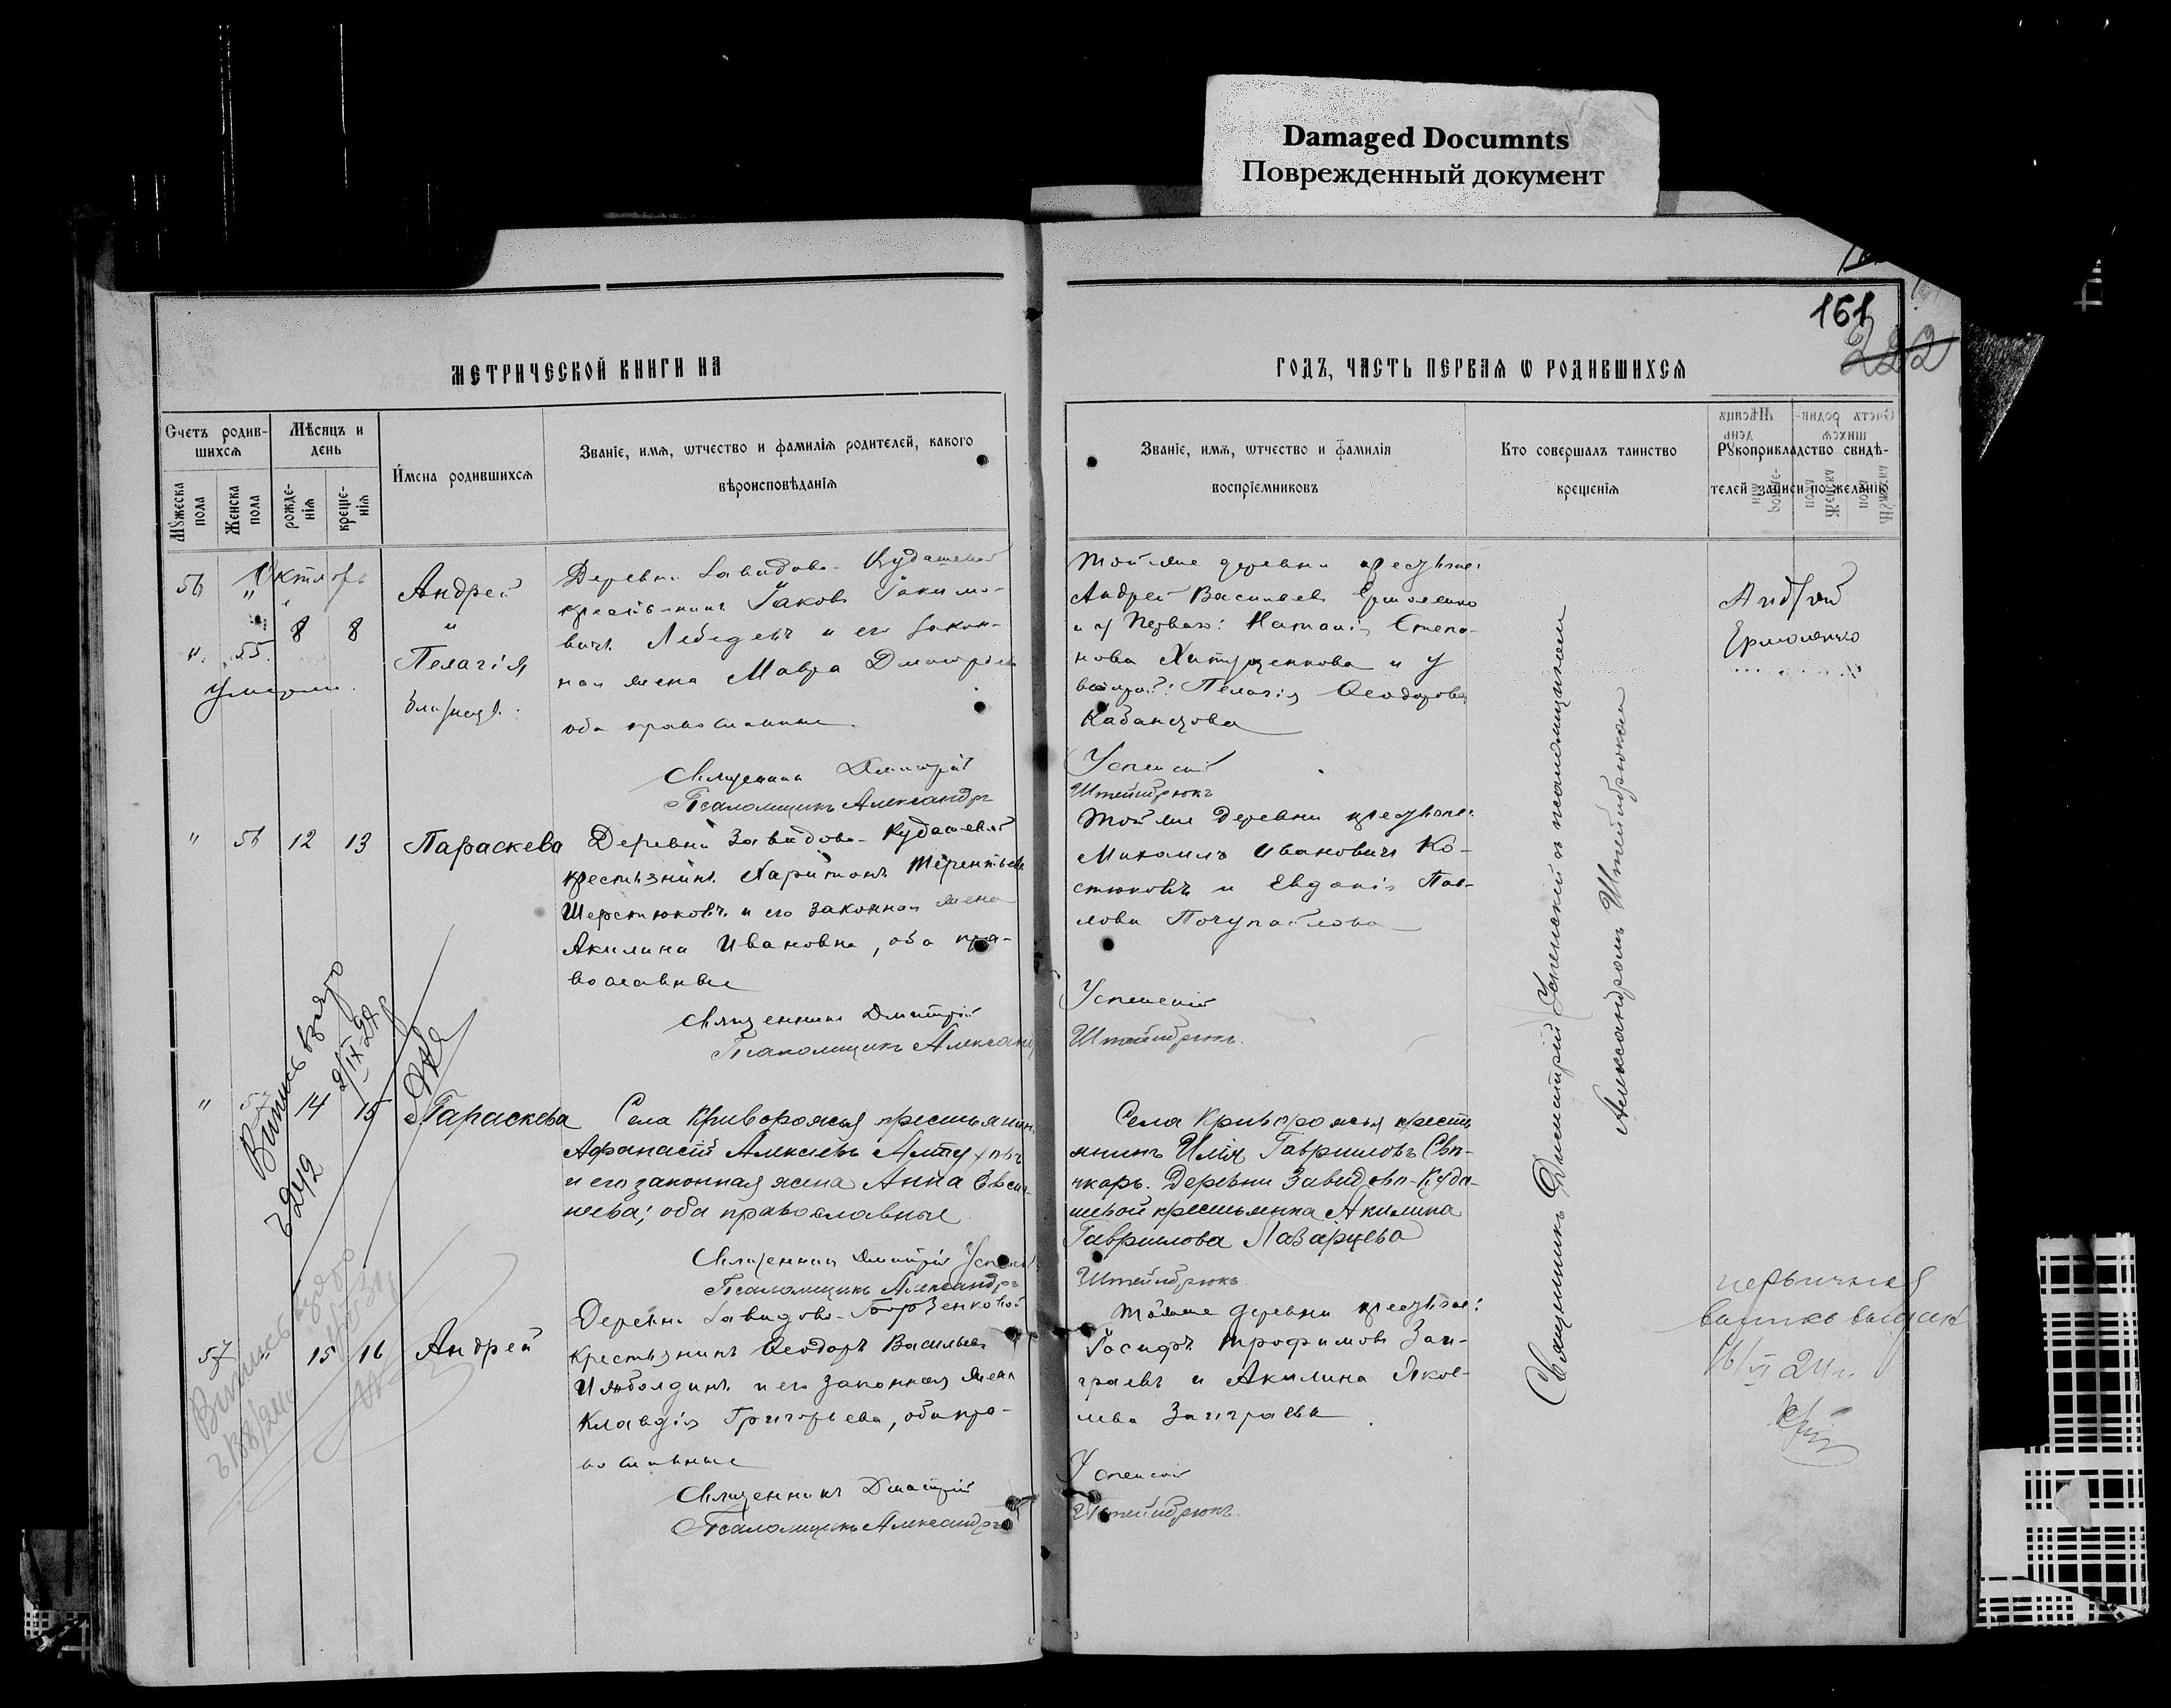 Damaged Documnts
Поврежденный документ
161
222
МЕТРИЧЕСКОЙ КНИГИ НА
ГОДЪ, ЧАСТЬ ПЕРВАЯ Ѡ РОДИВШИХСЯ
Счетъ родив-
шихся
Мѣсяцъ и
день
Мꙋжеска
пола
Женска
пола
рожде-
нія
креще-
нія
Имена родившихся
Званіе, имя, ѿчество и фамилія родителей, какого
вѣроисповѣданія
Званіе, имя, ѿчество и фамилія
воспріемниковъ
Кто совершалъ таинство
крещенія
Рꙋкоприкладство свидѣ-
телей записи по желанію
56 " Октябрь
8 8
" 55
Умерли.
Андрей
и
Пелагія
близнецы
Деревни Завидово-Кудашевой
крестьянинъ Іаковъ Іакимо-
вичъ Лебедевъ и его закон-
ная жена Мавра Дмитріева
оба православные
Священникъ Дмитрій
Псаломщикъ Александръ
Той же деревни
Андрей Васильевъ Ермоленко
и у первой: Наталія Степа-
нова и у
второй: Пелагія Ѳеодорова
Кабанцова
Успенскій
Штейнбрюкъ
Андрей
Ермоленко
" 56 12 13 Параскева
Деревни Завидово-Кудашевой
крестьянинъ Харитонъ Терентьевъ
Шерстюковъ и его законная жена
Акилина Ивановна, оба пра-
вославные
Священникъ Дмитрій
Псаломщикъ Александръ
Той же деревни
Михаилъ Ивановичъ Ко-
стюковъ и Евдокія Пав-
лова
Успенскій
Штейнбрюкъ.
" 57 14 15 Параскева
Села Криворожья крестьянинъ
Афанасій Алексѣевъ Алтуховъ
и его законная жена Анна
оба православные
Священникъ Дмитрій Успенскій
Псаломщикъ Александръ
Села Криворожья кресть
янинъ Илія Гавриловъ Сви-
чкарь. Деревни Завидово-Куда-
шевой крестьянка Акилина
Гаврилова Лазарцева
Штейнбрюкъ
57 " 15 16 Андрей
Деревни Завидово-Борзенковой
крестьянинъ Ѳеодоръ Васильевъ
и его законная жена
Клавдія Григорьева, оба пра-
вославные
Священникъ Дмитрій
Псаломщикъ Александръ
Той же деревни
Іосифъ Трофимовъ Заи-
граевъ и Акилина Яков-
лева Заиграева
Успенскій
Штейнбрюкъ.
Священникъ Димитрій Успенскій и псаломщикомъ
Александромъ Штейнбрюкомъ